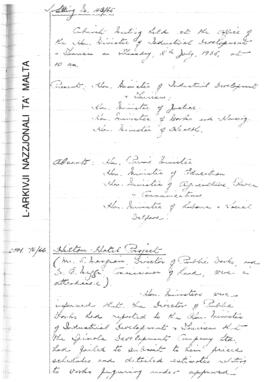 Sitting No. 43/65
Cabinet Meeting held at the Office of
the Hon. Minister of Industrial Development
& Tourism on Thursday, 8th July, 1965, at
10 am.
Present: Hon. Minister of Industrial Development
& Tourism;
Hon. Minister of Justice
Hon. Minister of Works and Housing
Hon. Minister of Health.
Absent: Hon. Prime Minister
Hon. Minister of Education
Hon. Minister of Agriculture Power
& Communications
Hon. Minister of Labour & Social
Welfare.
L-ARKIVJI NAZZJONALI TA' MALTA
Hilton Hotel Project
(Mr. Director of Public Works and
Commissioner of Land, were in
attendance)
Hon. Ministers were
informed that the Director of Public
Works had reported to the Hon. Minister
of Industrial Development & Tourism that
the Spinola Development Company Ltd.
had failed to submit to him priced
schedules and detailed estimates relating
to works figuring under approved